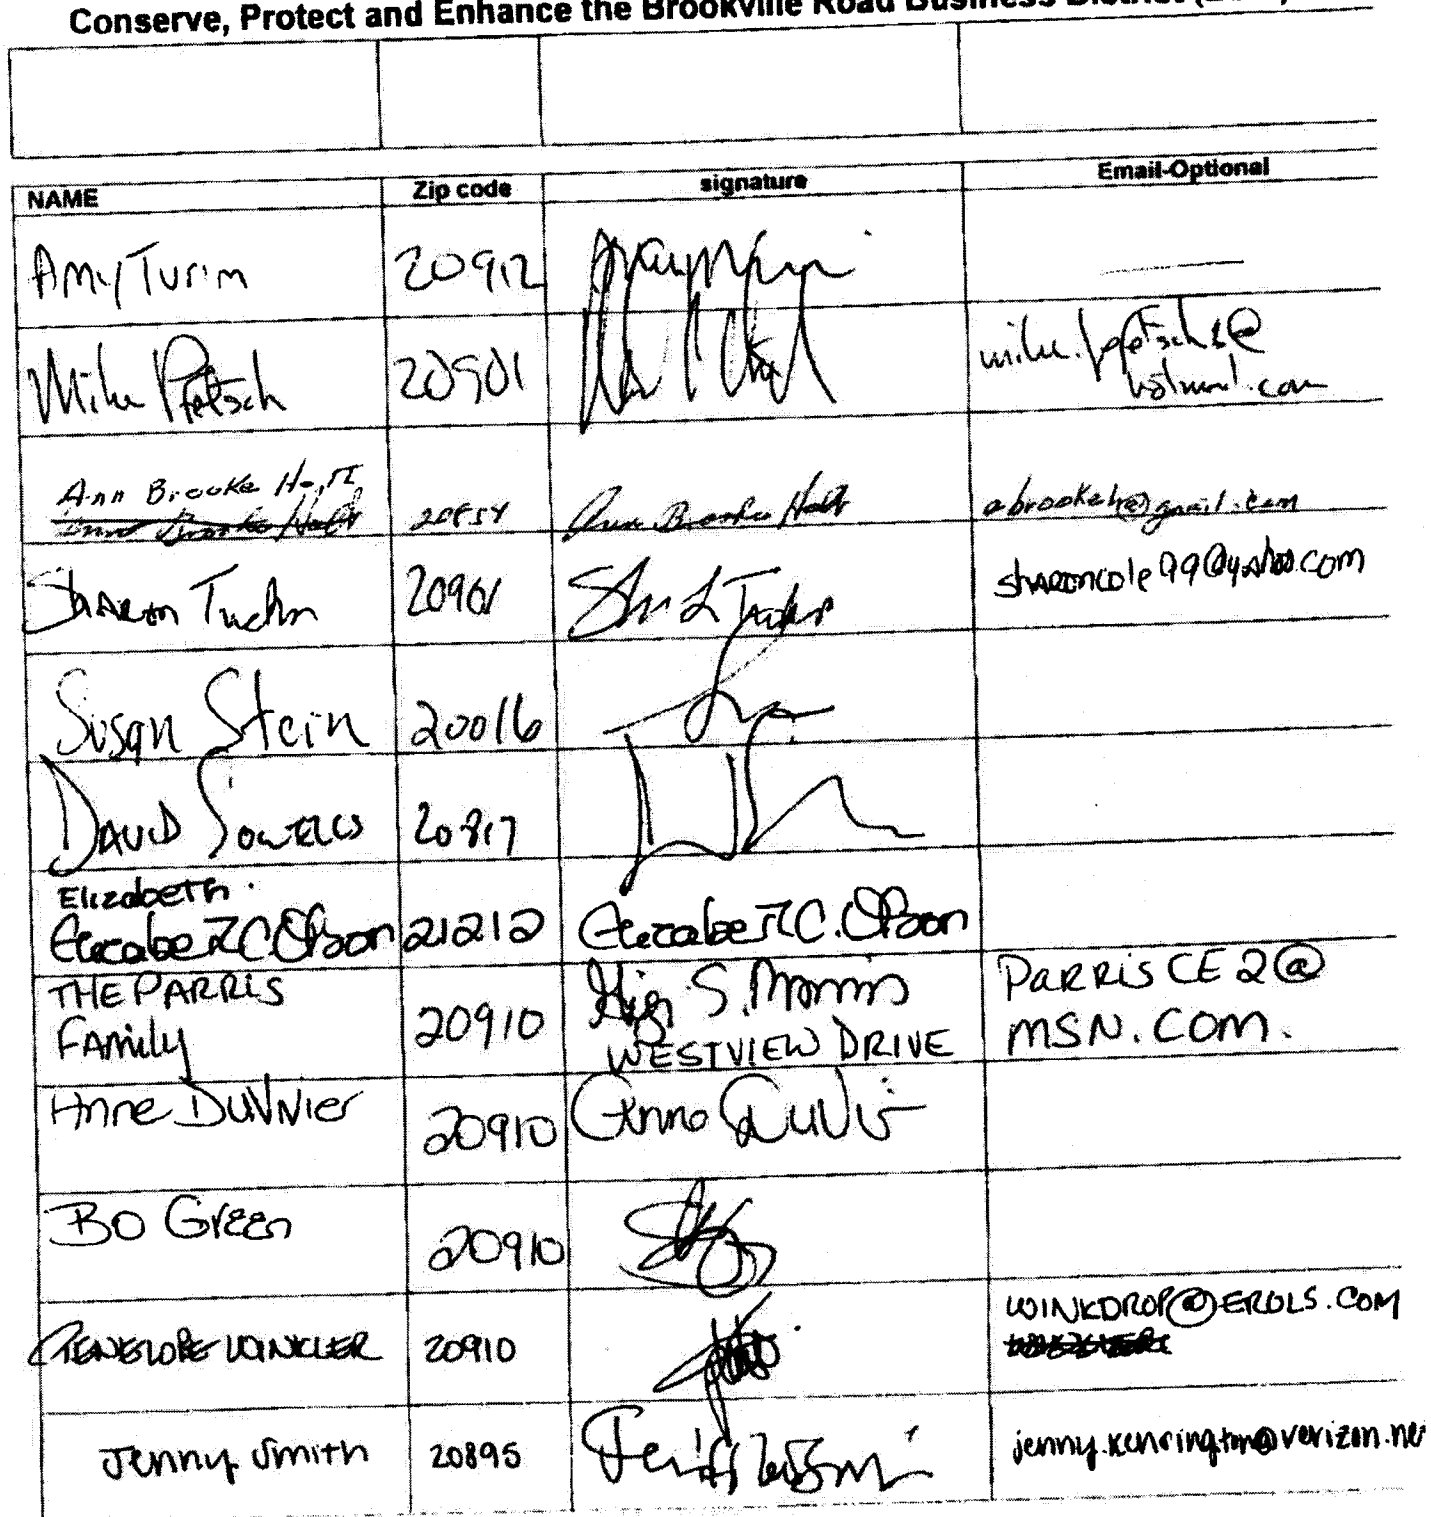 Conserve, Protect and Enhance the Brookville Road Business District
NAME Zip code signature Email-Optional
Amy Turim 20912
Mike Pfetsch 20901 mike.pfetsch1@
hotmail.com
Ann Brooke Holt
20854 Ann Brooke Holt abrookeh@gmail.com
Sharon 20901 sharoncole99@yahoo.com
Susan Stein 20016
David Sowells 20817
Elizabeth
Elizabeth C. Olson 21212 Elizabeth C. Olson
THE PARRIS
Family 20910 S. Morris PARRISCE2@
WESTVIEW DRIVE MSN.COM.
Anne DuVivier 20910 Anne
Bo Green 20910
PENELOPE WINKLER 20910 WINKDROP@EROLS.COM
Jenny Smith 20895 jenny.kensington@verizon.net